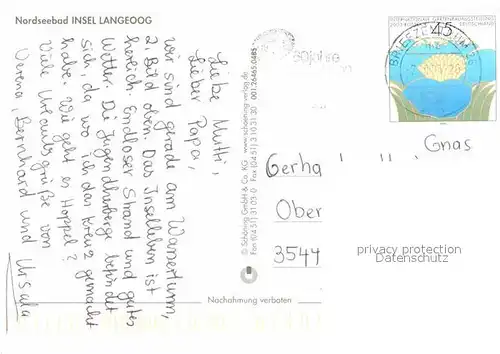 Nordseebad INSEL LANGEOOG
Liebe Mutti,
Lieber Papa,
wir sind gerade am Wasserturm,
2. Bild oben. Das Inselleben ist
herrlich. Endloser Strand und gutes
Wetter. Die Jugendherberge befindet
sich, da wo ich das Kreuz gemacht
habe. Wie geht es Hoppel?
Viele Urlaubsgrüße von
Verena, Bernhard und Ursula
© Schöning GmbH & Co. KG · www.schoening-verlag.de
Fax (04 51) 3 10 31 30 001 26465 0485
30 Jahre
BRIEFZENTRUM
45
Gerha
Gnas
Ober
3544
privacy protection
Datenschutz
Nachahmung verboten